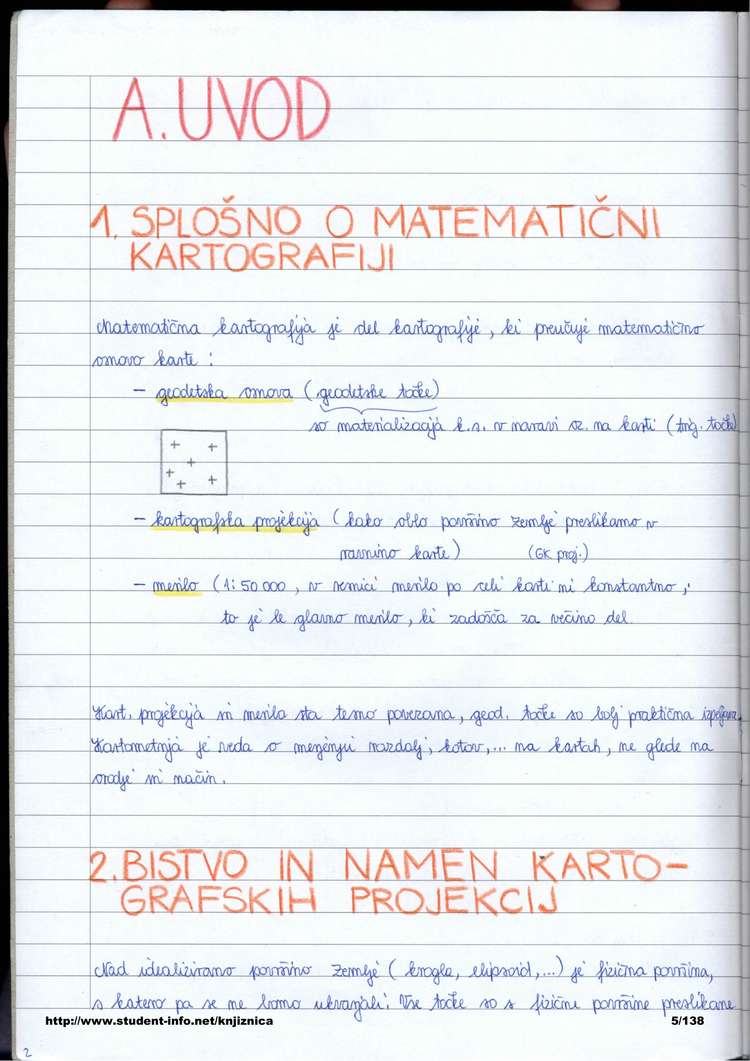 A. UVOD
1. SPLOŠNO O MATEMATIČNI
KARTOGRAFIJI
Matematična kartografija je del kartografije, ki preučuje matematično
osnovo karte:
- geodetska osnova (geodetske točke)
so materializacija k.s. v naravi oz. na karti (trig. točk)
- kartografska projekcija (kako oblo površino zemlje preslikamo v
ravnino karte) (GK proj.)
- merilo (1:50 000, v resnici merilo po celi karti ni konstantno,
to je le glavno merilo, ki zadošča za večino del.
Kart. projekcija in merilo sta tesno povezana, geod. točke so bolj praktična
Kartometrija je veda o merjenju razdalj, kotov,... na kartah, ne glede na
orodje in način.
2. BISTVO IN NAMEN KARTO-
GRAFSKIH PROJEKCIJ
Nad idealizirano površino Zemlje (krogla, elipsoid,...) je fizična površina,
s katero pa se ne bomo ukvarjali. Vse točke so s fizične površine preslikane
http://www.student-info.net/knjiznica 5/138
2